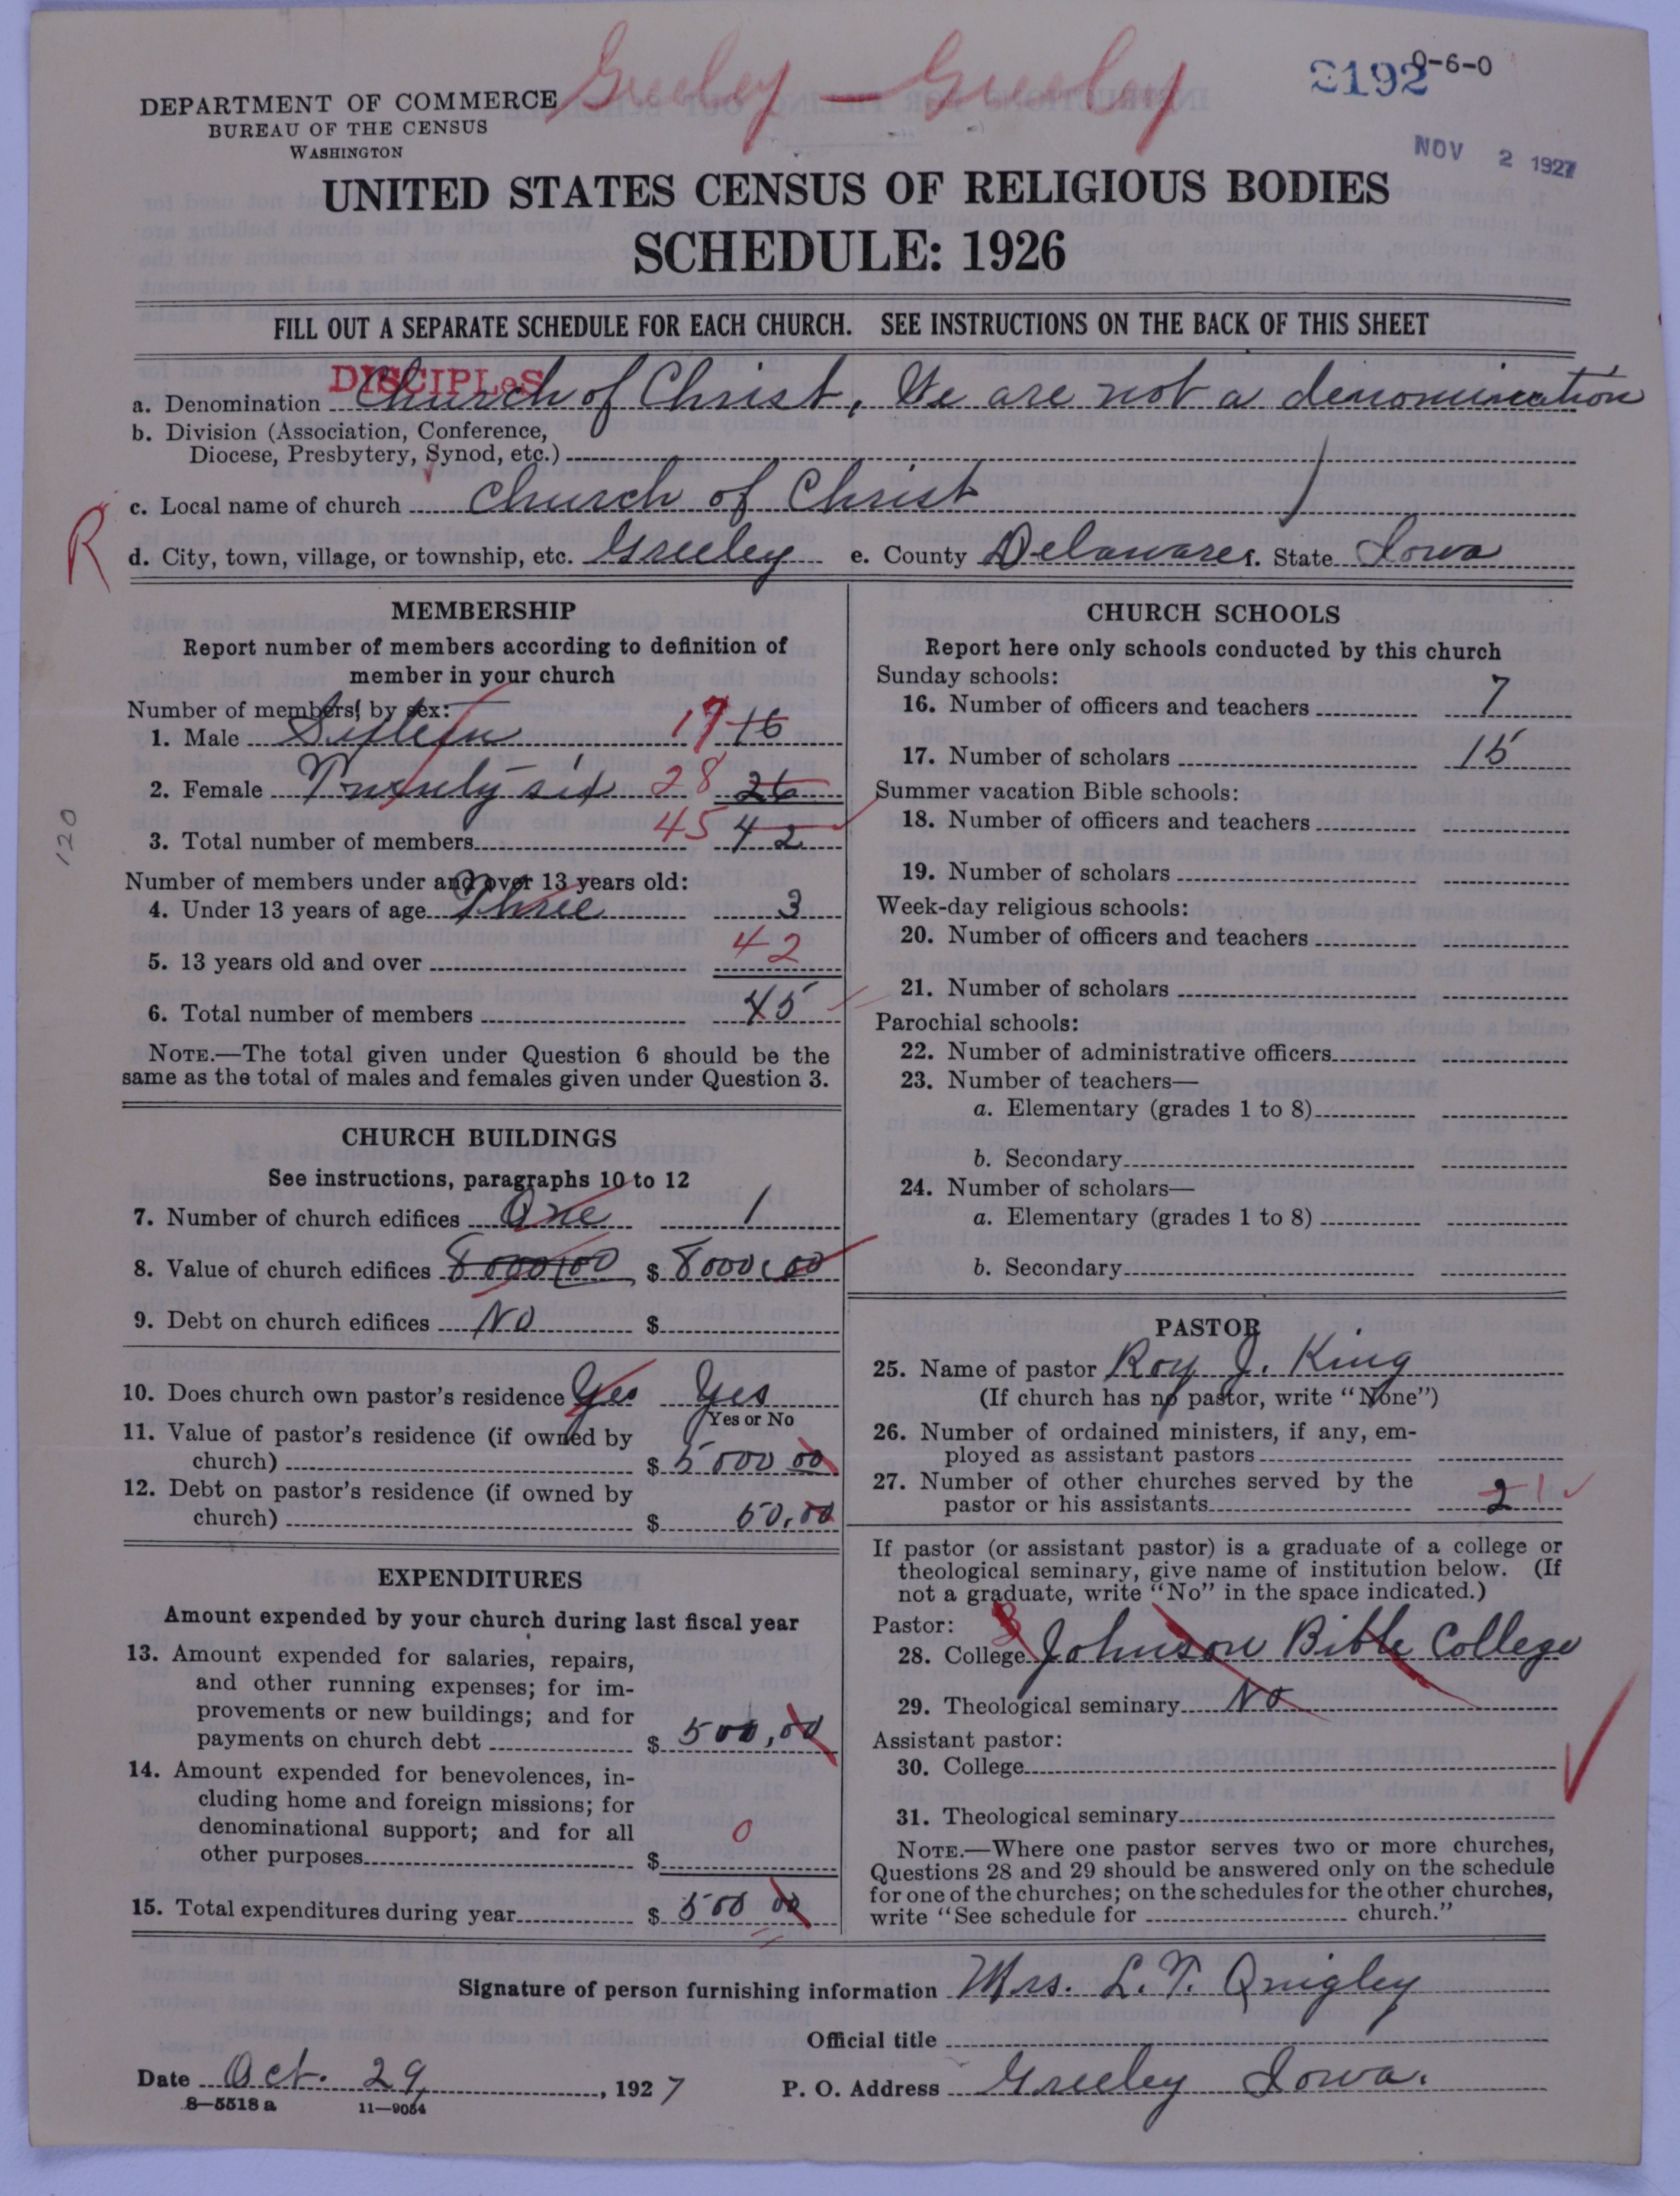 Greeley — Greeley
2192
0-6-0
DEPARTMENT OF COMMERCE
BUREAU OF THE CENSUS
WASHINGTON
NOV 2 1927
UNITED STATES CENSUS OF RELIGIOUS BODIES
SCHEDULE: 1926
FILL OUT A SEPARATE SCHEDULE FOR EACH CHURCH. SEE INSTRUCTIONS ON THE BACK OF THIS SHEET
DISCIPLeS
a. Denomination Church of Christ, We are not a denomination
b. Division (Association, Conference,
Diocese, Presbytery, Synod, etc.)
c. Local name of church Church of Christ
R
d. City, town, village, or township, etc. Greeley e. County Delaware f. State Iowa
MEMBERSHIP
Report number of members according to definition of
member in your church
Number of members by sex:
1. Male Sixteen 17 16
2. Female Twenty six 28 26
3. Total number of members 45 42
120
Number of members under and over 13 years old:
4. Under 13 years of age Three 3
5. 13 years old and over 42
6. Total number of members 45
NOTE.—The total given under Question 6 should be the
same as the total of males and females given under Question 3.
CHURCH BUILDINGS
See instructions, paragraphs 10 to 12
7. Number of church edifices One 1
8. Value of church edifices 8000.00 $ 8000.00
9. Debt on church edifices No $
10. Does church own pastor's residence Yes Yes
Yes or No
11. Value of pastor's residence (if owned by
church) $ 5000 00
12. Debt on pastor's residence (if owned by
church) $ 50.00
EXPENDITURES
Amount expended by your church during last fiscal year
13. Amount expended for salaries, repairs,
and other running expenses; for im-
provements or new buildings; and for
payments on church debt $ 500,00
14. Amount expended for benevolences, in-
cluding home and foreign missions; for
denominational support; and for all
other purposes $ 0
15. Total expenditures during year $ 500 00
CHURCH SCHOOLS
Report here only schools conducted by this church
Sunday schools:
16. Number of officers and teachers 7
17. Number of scholars 15
Summer vacation Bible schools:
18. Number of officers and teachers
19. Number of scholars
Week-day religious schools:
20. Number of officers and teachers
21. Number of scholars
Parochial schools:
22. Number of administrative officers
23. Number of teachers—
a. Elementary (grades 1 to 8)
b. Secondary
24. Number of scholars—
a. Elementary (grades 1 to 8)
b. Secondary
PASTOR
25. Name of pastor Roy J. King
(If church has no pastor, write "None")
26. Number of ordained ministers, if any, em-
ployed as assistant pastors
27. Number of other churches served by the
pastor or his assistants 2 1
If pastor (or assistant pastor) is a graduate of a college or
theological seminary, give name of institution below. (If
not a graduate, write "No" in the space indicated.)
Pastor:
28. College Johnson Bible College
29. Theological seminary No
Assistant pastor:
30. College
31. Theological seminary
NOTE.—Where one pastor serves two or more churches,
Questions 28 and 29 should be answered only on the schedule
for one of the churches; on the schedules for the other churches,
write "See schedule for church."
Signature of person furnishing information Mrs. L. T. Quigley
Official title
Date Oct. 29, 1927 P. O. Address Greeley Iowa.
8—5518 a 11—9054